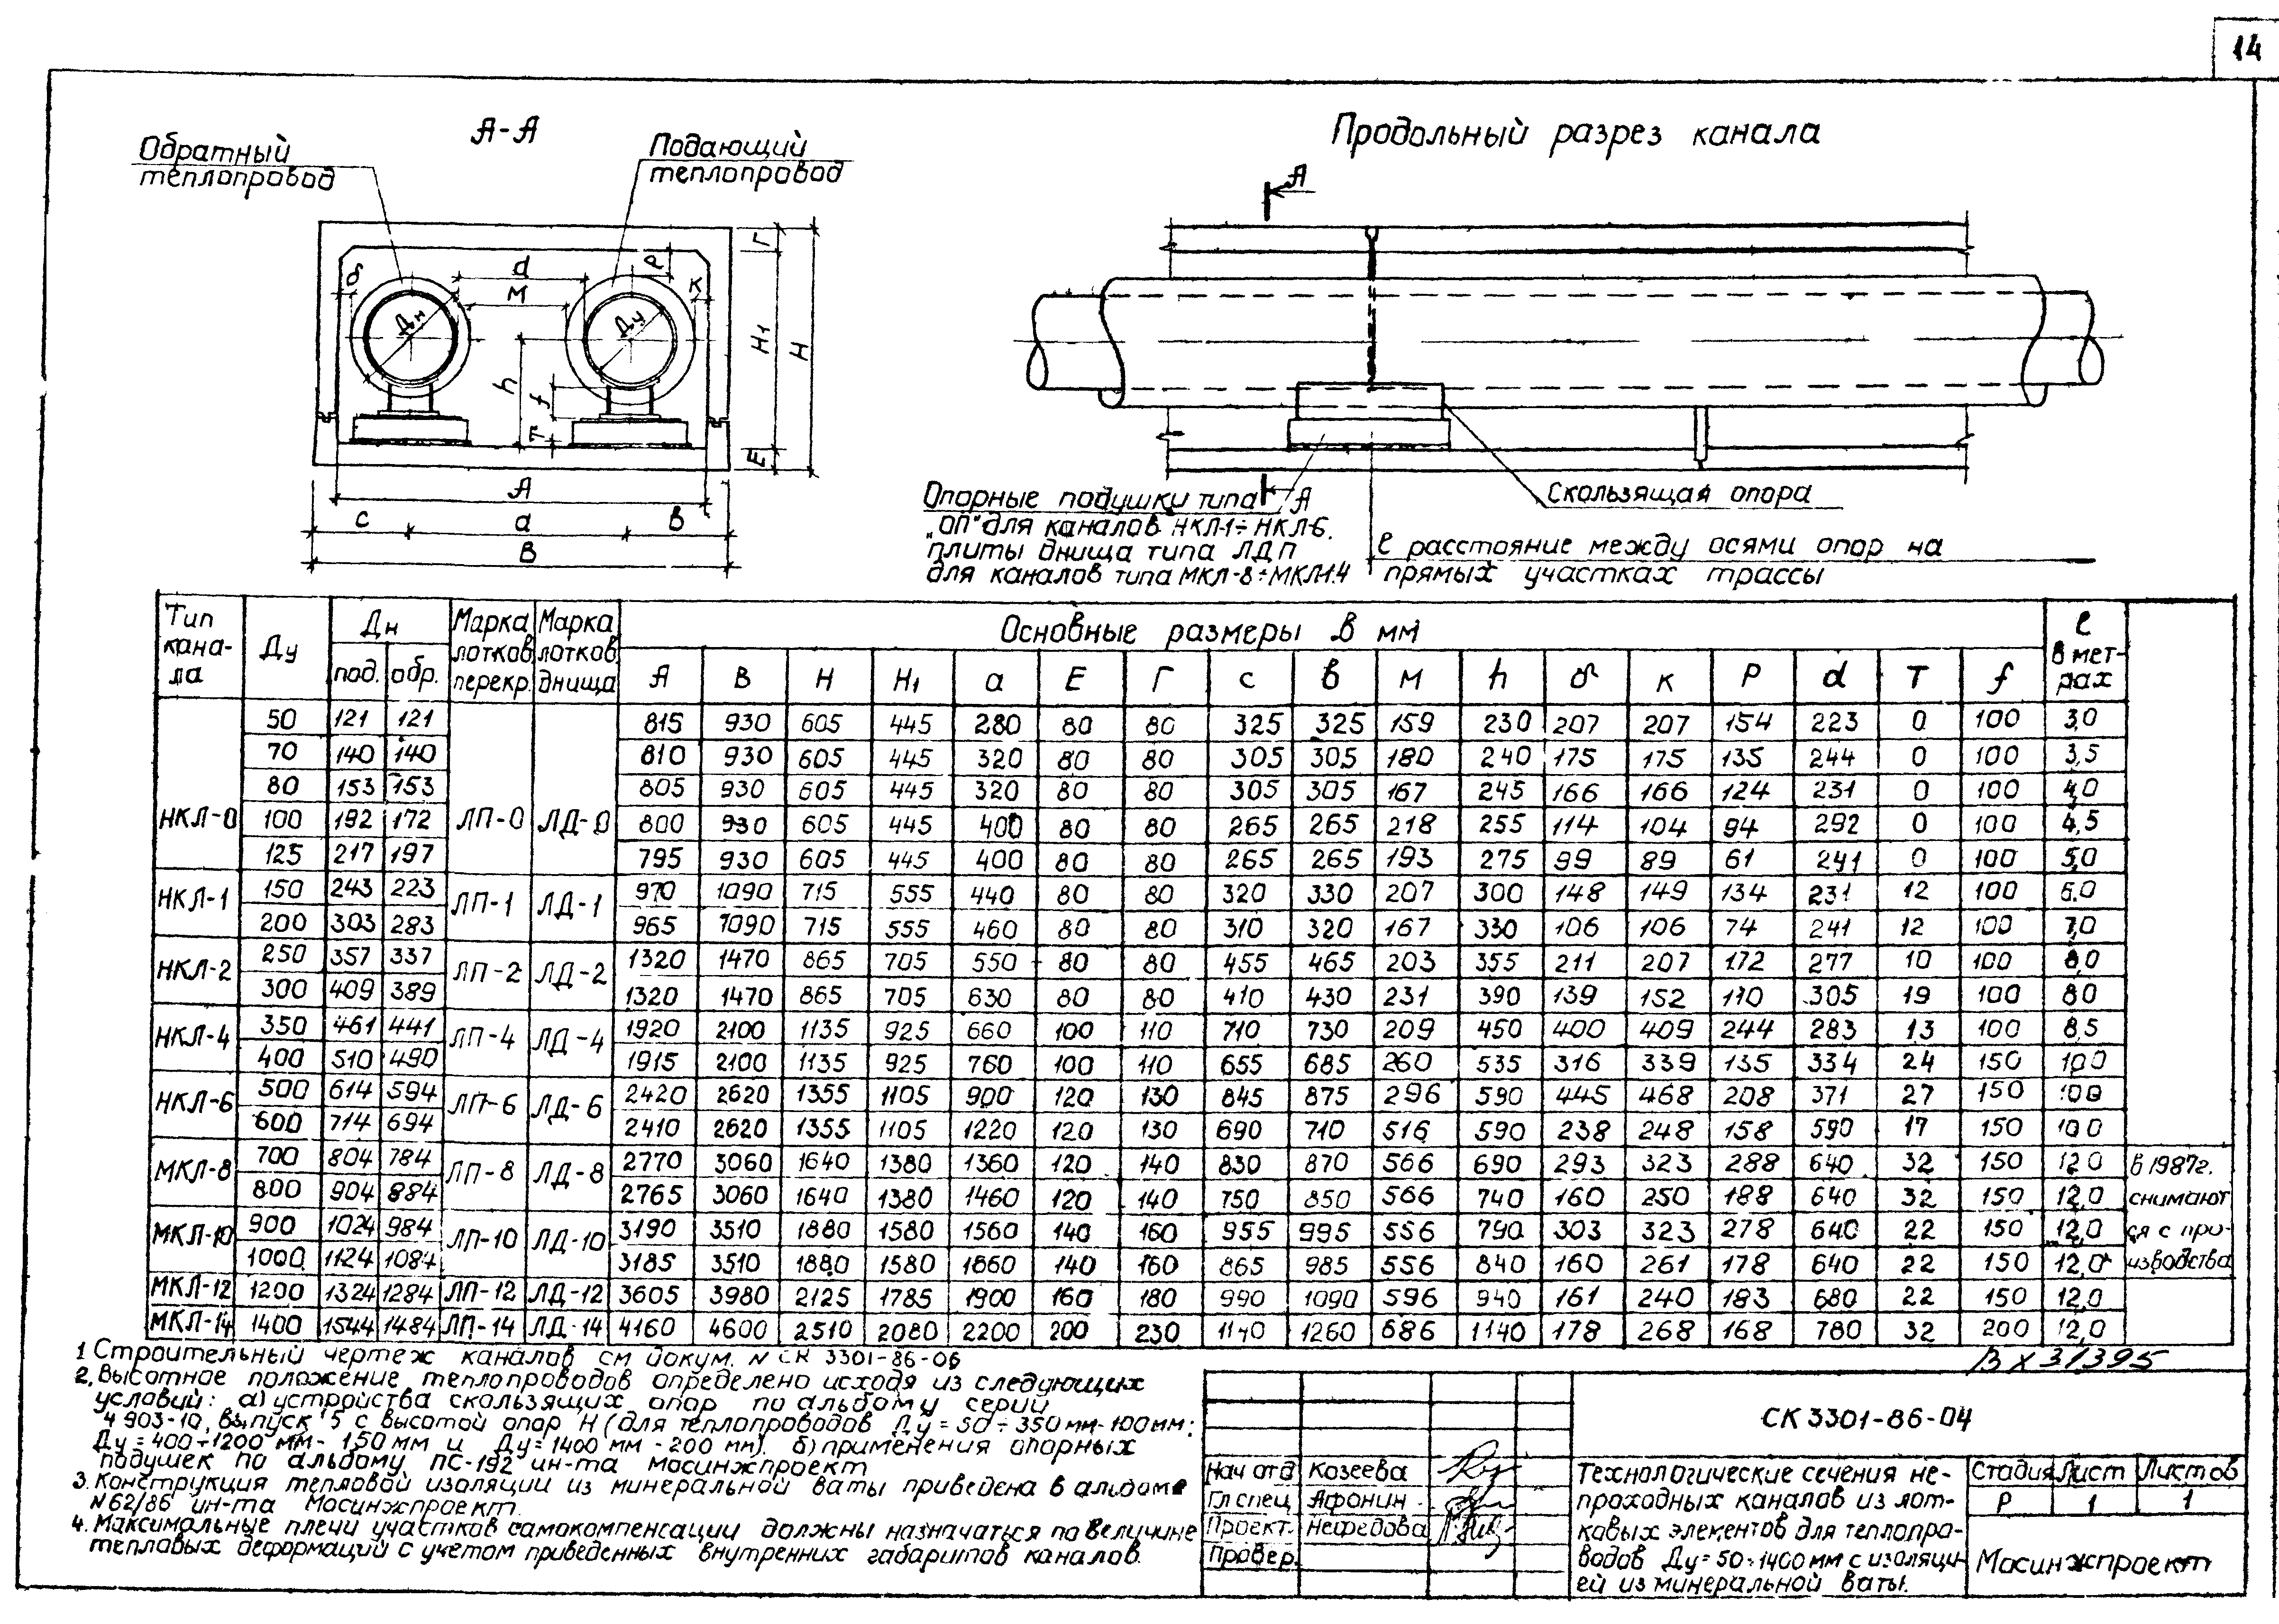 14
А-А
Продольный разрез канала
Обратный
теплопровод
Подающий
теплопровод
А
Г
δ
d
Р
М
К
Дн
Ду
Н1
Н
h
f
Т
Е
А
с
а
в
В
А
Опорные подушки типа
„ОП" для каналов НКЛ-1÷НКЛ-6.
плиты днища типа ЛДП
для каналов типа МКЛ-8÷МКЛ-14
Скользящая опора
ℓ расстояние между осями опор на
прямых участках трассы
Тип кана-ла Ду Дн под. обр. Марка лотков перекр. Марка лотков днища Основные размеры в мм ℓ в мет-рах
А В Н Н1 а Е Г с в М h δ К Р d Т f
НКЛ-0 50 121 121 ЛП-0 ЛД-0 815 930 605 445 280 80 80 325 325 159 230 207 207 154 223 0 100 3,0
70 140 140 810 930 605 445 320 80 80 305 305 180 240 175 175 135 244 0 100 3,5
80 153 153 805 930 605 445 320 80 80 305 305 167 245 166 166 124 231 0 100 4,0
100 192 172 800 930 605 445 400 80 80 265 265 218 255 114 104 94 292 0 100 4,5
125 217 197 795 930 605 445 400 80 80 265 265 193 275 99 89 61 241 0 100 5,0
НКЛ-1 150 243 223 ЛП-1 ЛД-1 970 1090 715 555 440 80 80 320 330 207 300 148 149 134 231 12 100 6.0
200 303 283 965 1090 715 555 460 80 80 310 320 167 330 106 106 74 241 12 100 7,0
НКЛ-2 250 357 337 ЛП-2 ЛД-2 1320 1470 865 705 550 80 80 455 465 203 355 211 207 172 277 10 100 8,0
300 409 389 1320 1470 865 705 630 80 80 410 430 231 390 139 152 110 305 19 100 80
НКЛ-4 350 461 441 ЛП-4 ЛД-4 1920 2100 1135 925 660 100 110 710 730 209 450 400 409 244 283 13 100 8,5
400 510 490 1915 2100 1135 925 760 100 110 655 685 260 535 316 339 135 334 24 150 10,0
НКЛ-6 500 614 594 ЛП-6 ЛД-6 2420 2620 1355 1105 900 120 130 845 875 296 590 445 468 208 371 27 150 100
600 714 694 2410 2620 1355 1105 1220 120 130 690 710 516 590 238 248 158 590 17 150 100
МКЛ-8 700 804 784 ЛП-8 ЛД-8 2770 3060 1640 1380 1360 120 140 830 870 566 690 293 323 288 640 32 150 12,0 в 1987г.
800 904 884 2765 3060 1640 1380 1460 120 140 750 850 566 740 160 250 188 640 32 150 12,0 снимают
МКЛ-10 900 1024 984 ЛП-10 ЛД-10 3190 3510 1880 1580 1560 140 160 955 995 556 790 303 323 278 640 22 150 12,0 ся с про-
1000 1124 1084 3185 3510 1880 1580 1660 140 160 865 985 556 840 160 261 178 640 22 150 12,0 изводства
МКЛ-12 1200 1324 1284 ЛП-12 ЛД-12 3605 3980 2125 1785 1900 160 180 990 1090 596 940 161 240 183 680 22 150 12,0
МКЛ-14 1400 1544 1484 ЛП-14 ЛД-14 4160 4600 2510 2080 2200 200 230 1140 1260 686 1140 178 268 168 780 32 200 12,0
1 Строительный чертеж каналов см докум. N СК 3301-86-06
2. Высотное положение теплопроводов определено исходя из следующих
условий: а) устройства скользящих опор по альбому серии
4 903-10, выпуск 5 с высотой опор Н (для теплопроводов Ду=50÷350мм-100мм;
Ду=400÷1200 мм- 150мм и Ду=1400 мм -200 мм). б) применения опорных
подушек по альбому ПС-192 ин-та Мосинжпроект
3. Конструкция тепловой изоляции из минеральной ваты приведена в альбоме
N62/86 ин-та Мосинжпроект.
4. Максимальные плечи участков самокомпенсации должны назначаться по величине
тепловых деформаций с учетом приведенных внутренних габаритов каналов.
Вх 31395
СК 3301-86-04
Нач отд Козеева
Гл спец Афонин
Проект. Нефедова
Провер.
Технологические сечения не-
проходных каналов из лот-
ковых элементов для теплопро-
водов Ду=50÷1400мм с изоляци-
ей из минеральной ваты.
Стадия Лист Листов
Р 1 1
Мосинжпроект